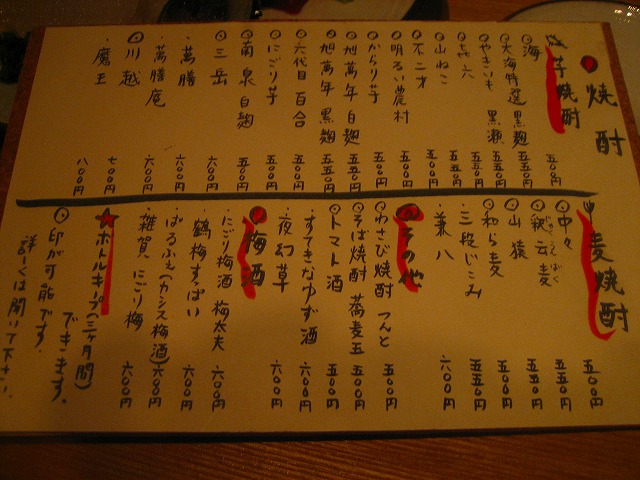 焼酎
芋焼酎
海 五〇〇円
大海特選黒麹 五五〇円
やきいも 黒瀬 五五〇円
㐂六 五五〇円
山ねこ 五五〇円
不二才 五〇〇円
明るい農村 五〇〇円
からり芋 五〇〇円
旭萬年 白麹 五五〇円
旭萬年 黒麹 五五〇円
六代目 百合 五〇〇円
にごり芋 五〇〇円
南泉 白麹 五〇〇円
三岳 六〇〇円
萬膳 六〇〇円
萬膳庵 六〇〇円
川越 七〇〇円
魔王 八〇〇円
麦焼酎
中々 五〇〇円
釈云麦 五五〇円
山猿 五五〇円
和ら麦 五五〇円
三段じこみ 五五〇円
兼八 六〇〇円
その他
わさび焼酎 つんと 五五〇円
そば焼酎 蕎麦五 五五〇円
トマト酒 五〇〇円
すてきなゆず酒 六〇〇円
夜幻草 六〇〇円
梅酒
にごり梅酒 梅太夫 六〇〇円
鶴梅すっぱい 六〇〇円
ぱるふぇ(カシス梅酒) 六〇〇円
雑賀 にごり梅 六〇〇円
★ボトルキープ(三ヶ月間)
できます。
⊙印が可能です。
詳しくは聞いて下さい。